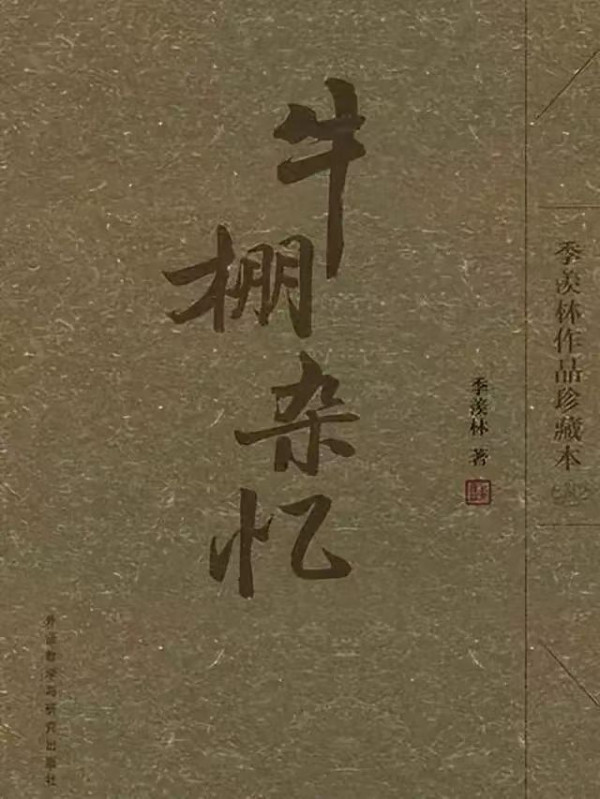 牛棚杂忆
季羡林 著
季羡林作品珍藏本
外语教学与研究出版社